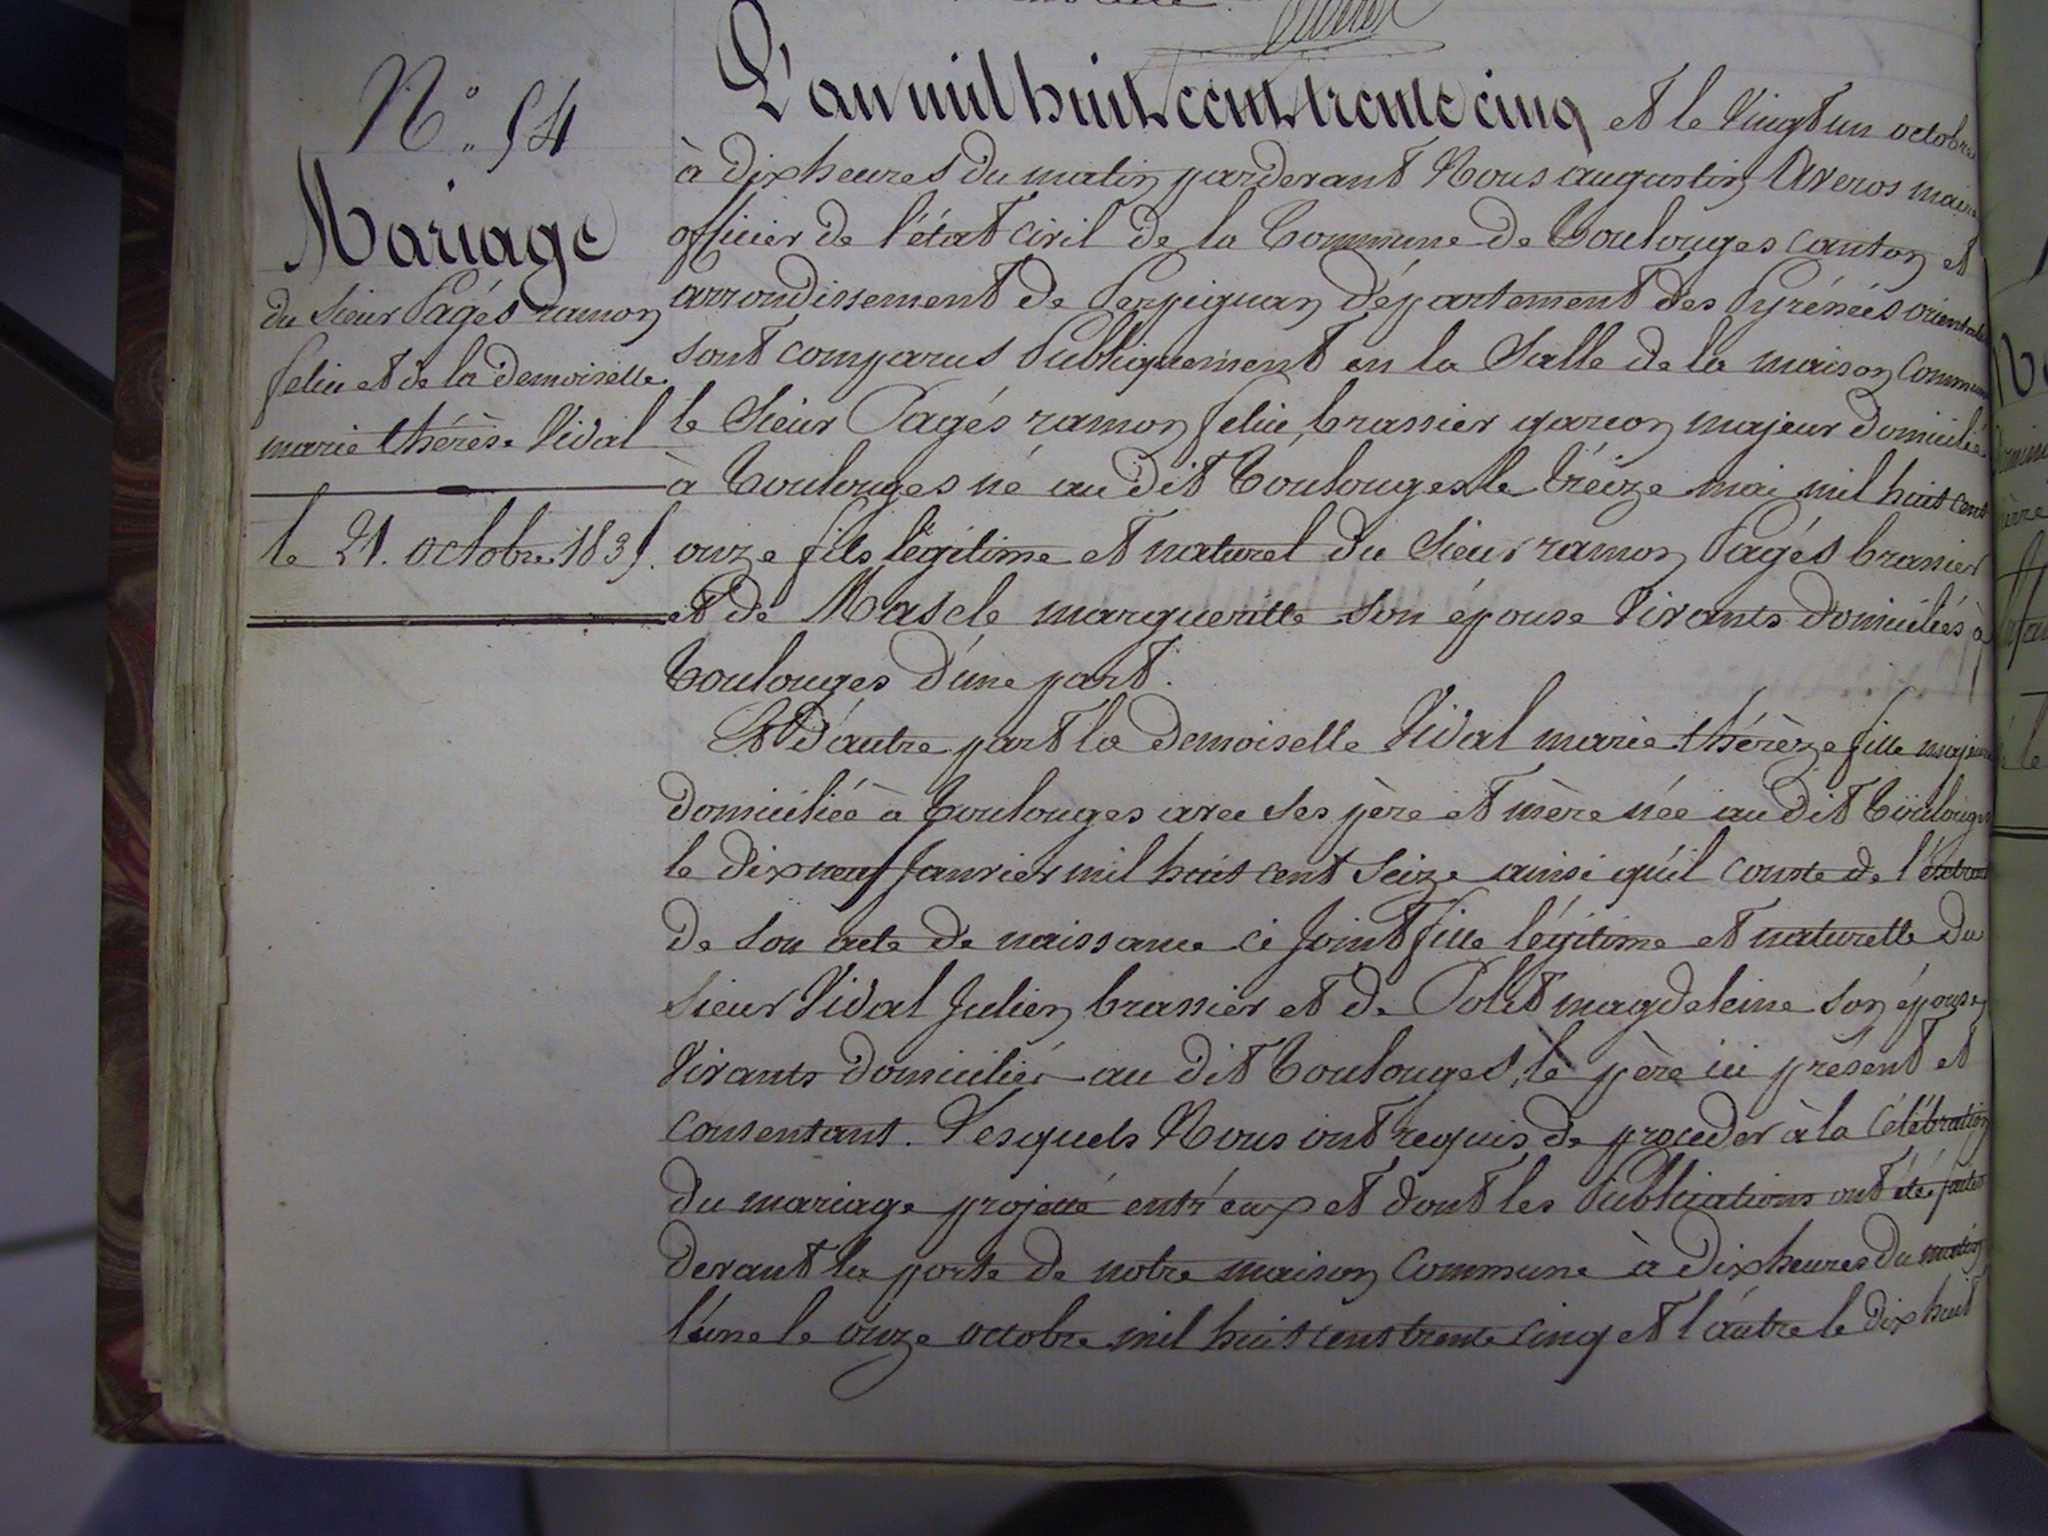 N.° 54
Mariage
du sieur Pagés ramon
felin et de la demoiselle
marie thérèse Vidal
le 21. octobre 1835.
L'an mil huit cent trente cinq et le Vingt un octobre
à dix heures du matin pardevant Nous augustin Averos maire
officier de l'état civil de la Commune de Toulouges canton et
arrondissement de Perpignan département des Pyrénées orientales
sont comparus Publiquement en la Salle de la maison Commune
le Sieur Pagés ramon felin, brassier garcon majeur domicilié
à Toulouges né au dit Toulouges le tréize mai mil huit cent
onze fils légitime et naturel du Sieur ramon Pagés brassier
et de Mascle margueritte son épouse Vivants domiciliés à
Toulouges d'une part.
Et d'autre part la demoiselle Vidal marie thérèze fille majeure
domiciliée à Toulouges avec ses père et mère née au dit Toulouges
le dix neuf Janvier mil huit cent Seize ainsi qu'il conste de l'éxtrait
de son acte de naissance ci Joint fille légitime et naturelle du
sieur Vidal Julien brassier et de Polit magdeleine son épouse,
Vivants domiciliés au dit Toulouges, le père ici présent et
consentant. Lesquels Nous ont requis de proceder à la Célébration
du mariage projetté entr'eux et dont les Publications ont été faites
devant la porte de notre maison Commune à dix heures du matin
l'une le onze octobre mil huit cent trente cinq et l'autre le dix huit